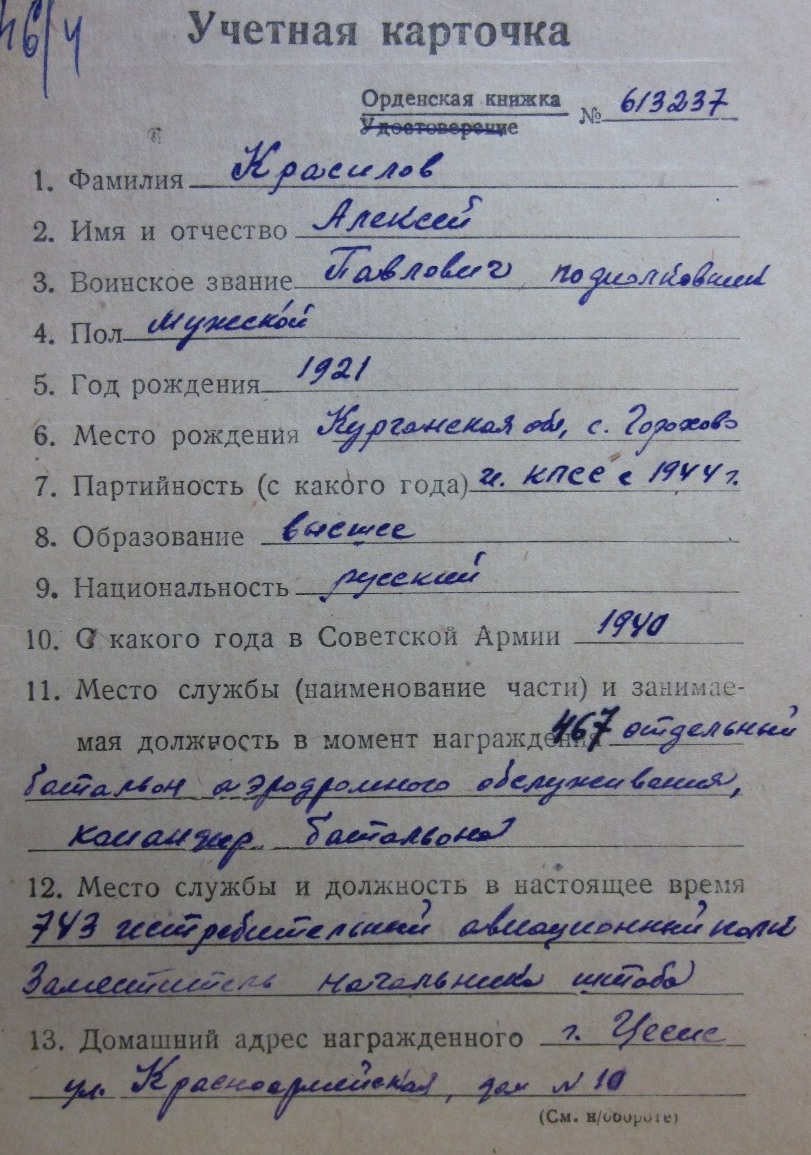 46/4
Учетная карточка
Орденская книжка
Удостоверение
№ 613237
1. Фамилия Красилов
2. Имя и отчество Алексей
3. Воинское звание Павлович подполковник
4. Пол Мужской
5. Год рождения 1921
6. Место рождения Курганская обл, с. Горохово
7. Партийность (с какого года) чл. КПСС с 1944 г.
8. Образование высшее
9. Национальность русский
10. С какого года в Советской Армии 1940
11. Место службы (наименование части) и занимае-
мая должность в момент награждения 467 отдельный
батальон аэродромного обслуживания,
командир батальона
12. Место службы и должность в настоящее время
743 истребительный авиационный полк
Заместитель начальника штаба
13. Домашний адрес награжденного г. Цесис
ул. Красноармейская, дом N 10
(См. н/обороте)